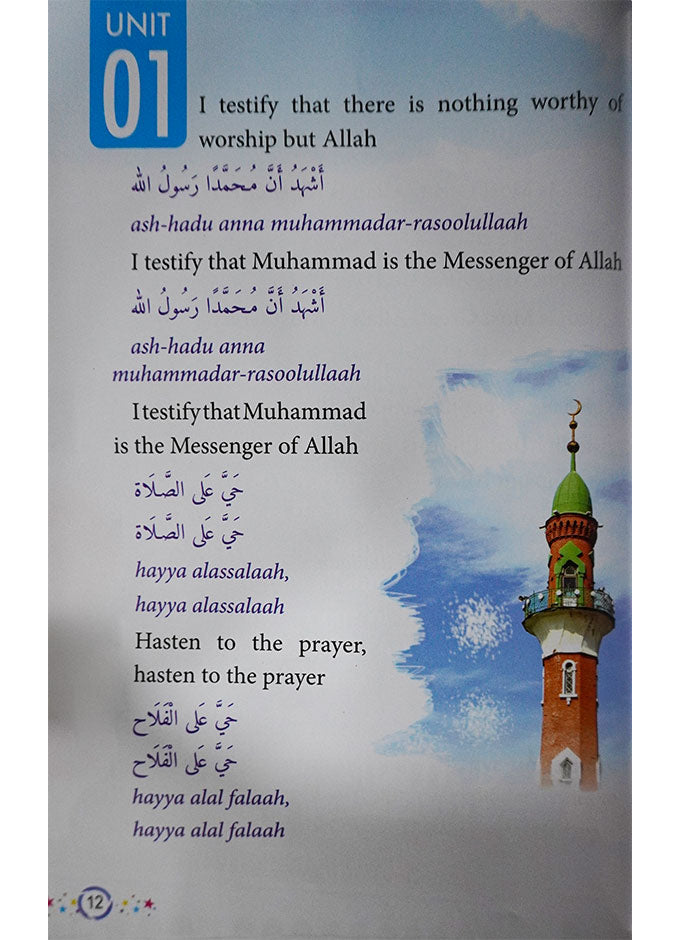 UNIT
01
I testify that there is nothing worthy of
worship but Allah
أَشْهَدُ أَنَّ مُحَمَّدًا رَسُولُ الله
ash-hadu anna muhammadar-rasoolullaah
I testify that Muhammad is the Messenger of Allah
أَشْهَدُ أَنَّ مُحَمَّدًا رَسُولُ الله
ash-hadu anna
muhammadar-rasoolullaah
I testify that Muhammad
is the Messenger of Allah
حَيَّ عَلى الصَّلَاة
حَيَّ عَلى الصَّلَاة
hayya alassalaah,
hayya alassalaah
Hasten to the prayer,
hasten to the prayer
حَيَّ عَلى الْفَلَاح
حَيَّ عَلى الْفَلَاح
hayya alal falaah,
hayya alal falaah
12